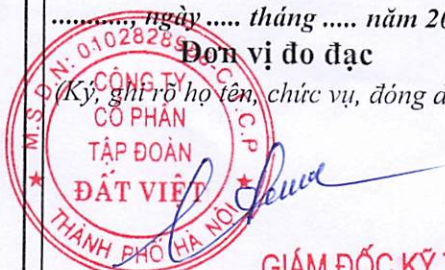 ............, ngày ..... tháng ..... năm 20
Đơn vị đo đạc
(Ký, ghi rõ họ tên, chức vụ, đóng d
M.S.D.N: 0102828
C.T.C.P
CÔNG TY
CỔ PHẦN
TẬP ĐOÀN
ĐẤT VIỆT
THÀNH PHỐ HÀ NỘI
GIÁM ĐỐC KỸ